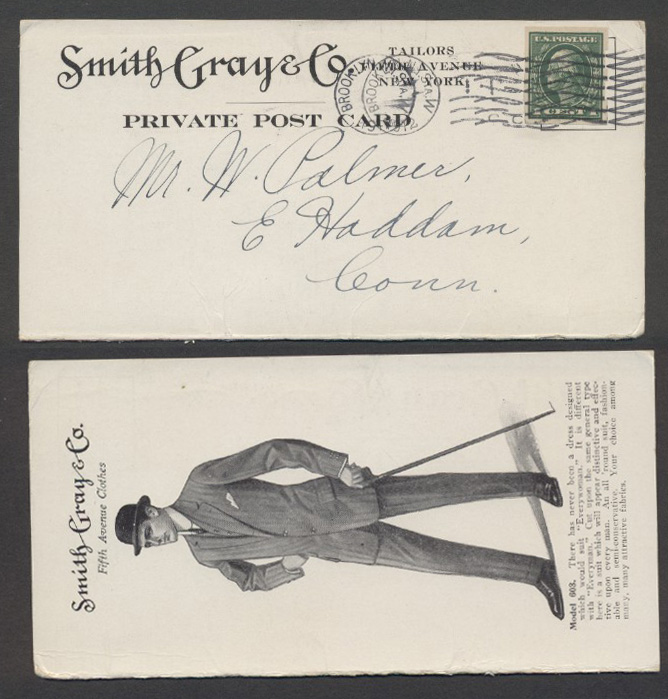 Smith Gray & Co.
TAILORS
FIFTH AVENUE
NEW YORK
PRIVATE POST CARD
U.S. POSTAGE
Mr. W. Palmer,
E Haddam,
Conn.
Smith Gray & Co.
Fifth Avenue Clothes
Model 603. There has never been a dress designed
which would suit "Everywoman." It is different
with "Everyman." Cut upon the same general type
here is a suit which will appear distinctive and effec-
tive upon every man. An all 'round suit, fashion-
able and semi-conservative. Your choice among
many, many attractive fabrics.